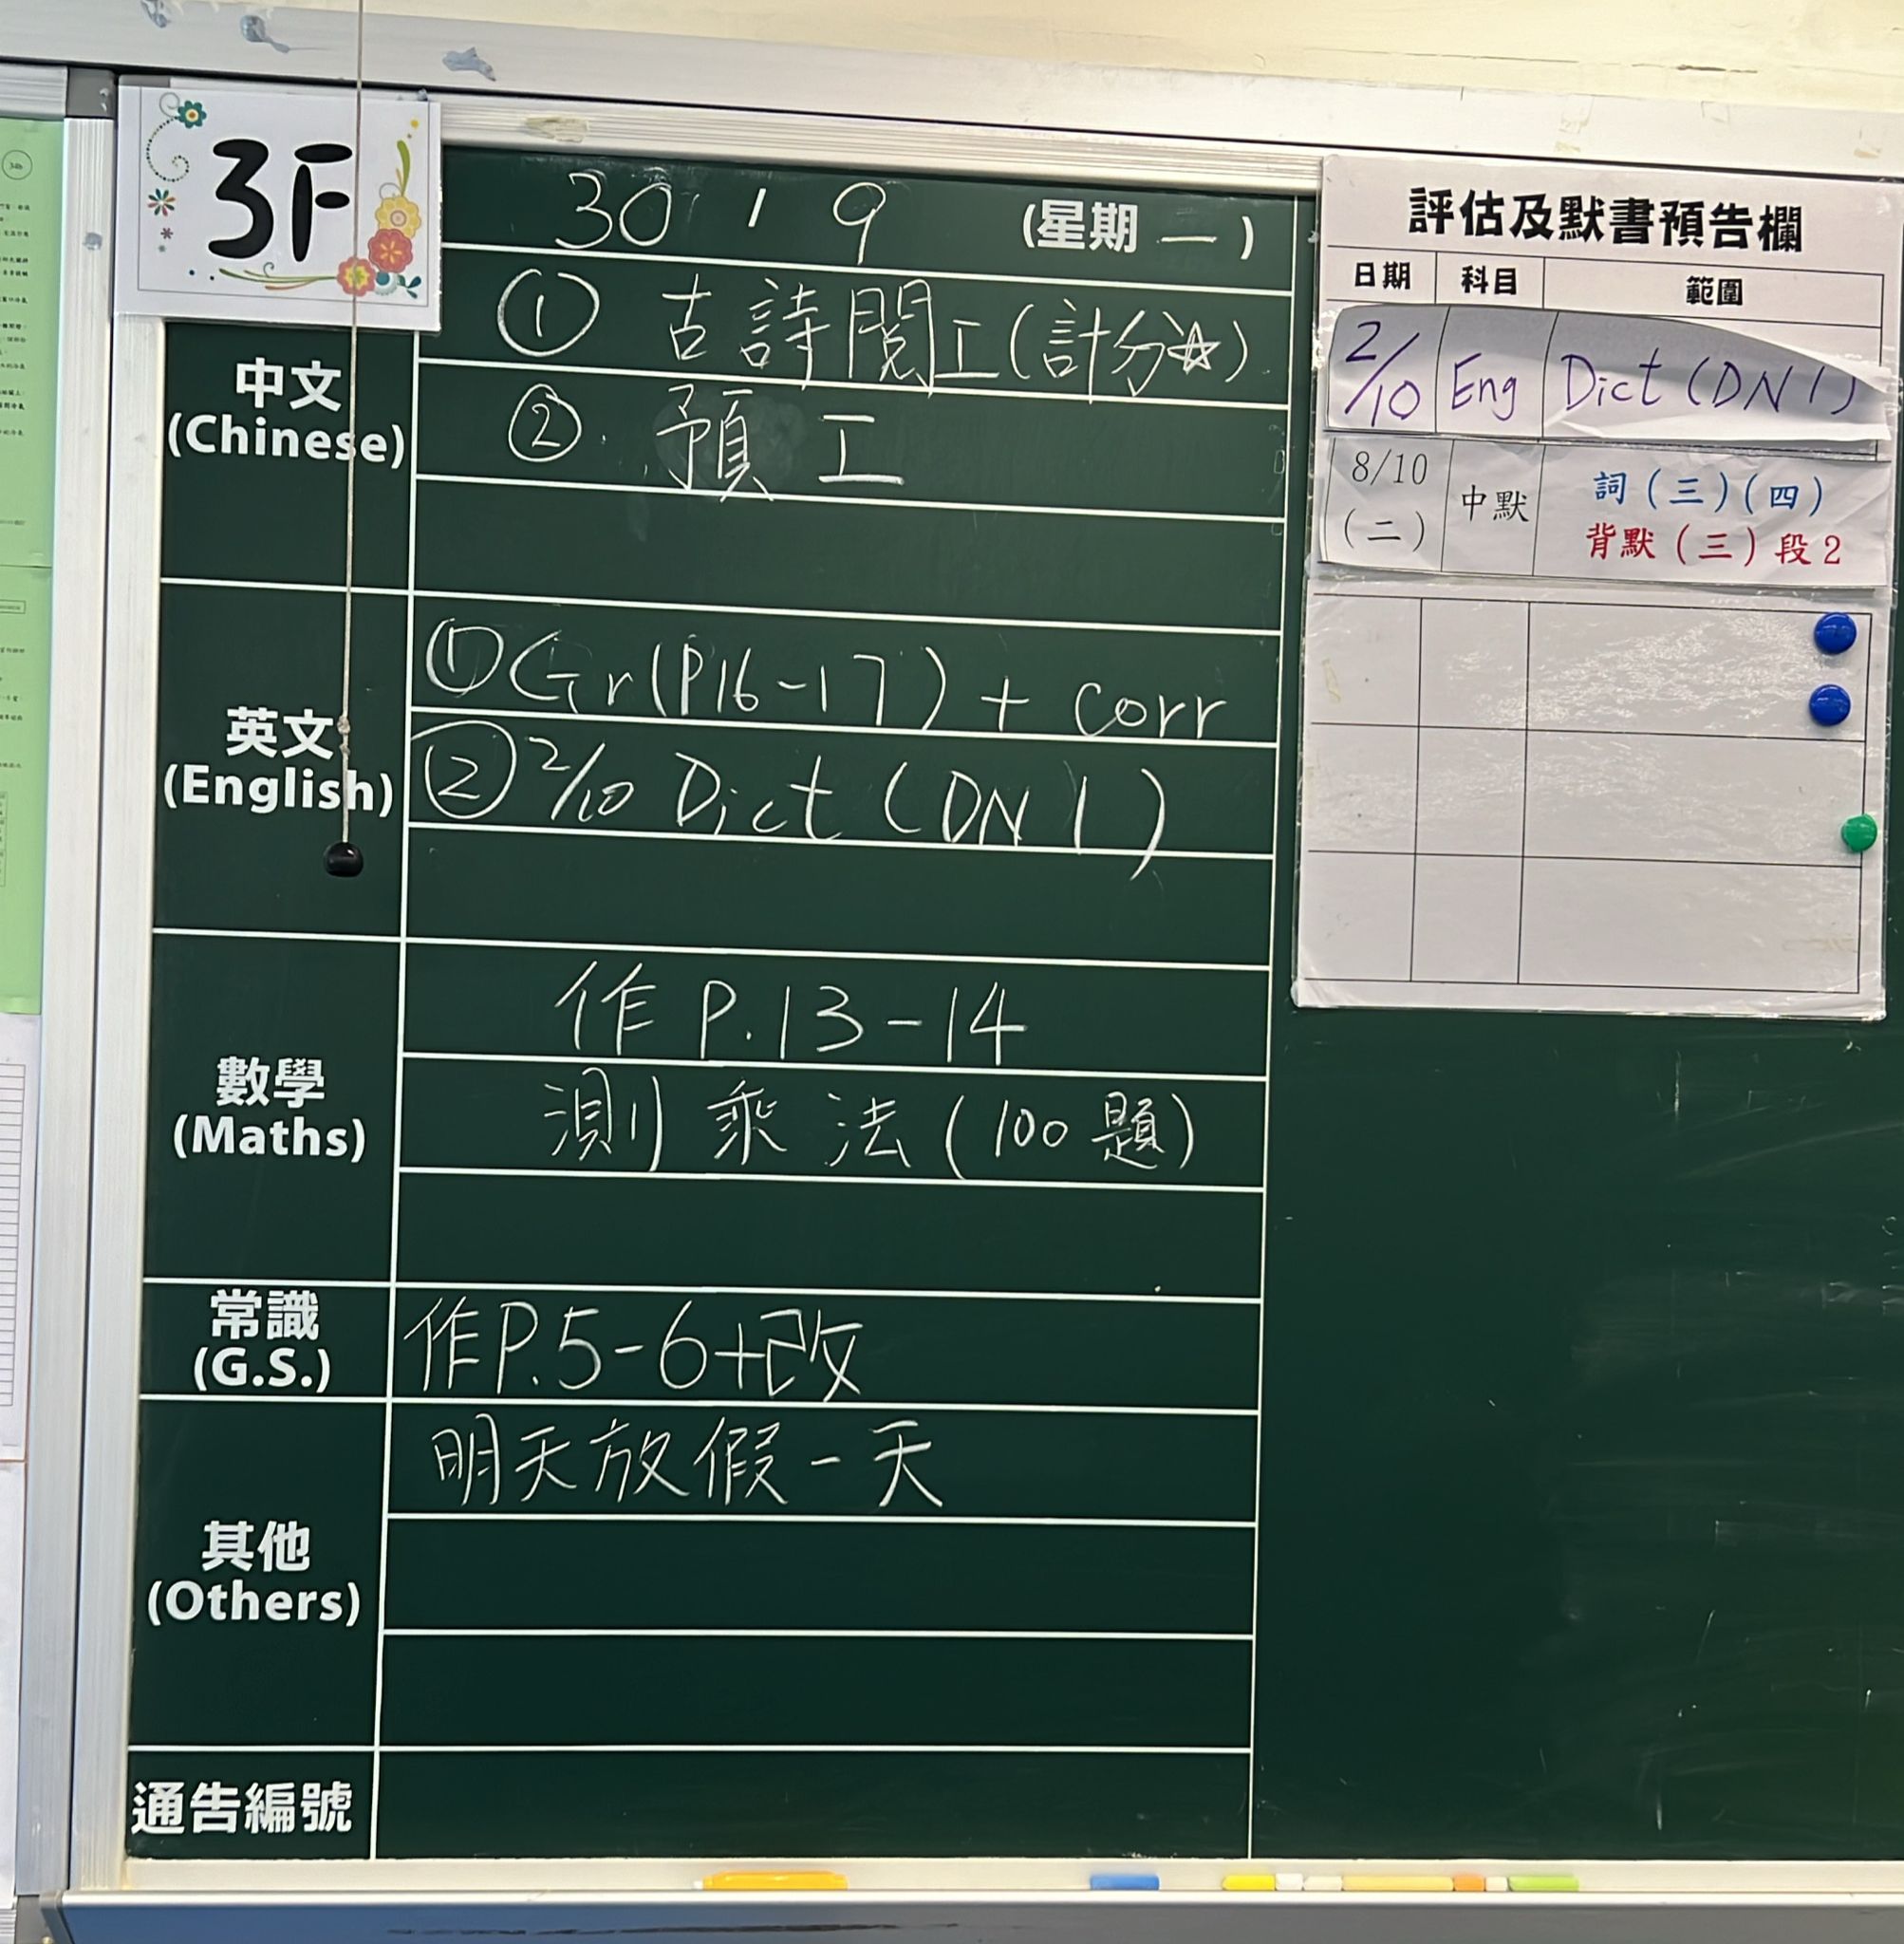 3F
30 / 9 (星期一)
中文
(Chinese)
① 古詩閱工(計分☆)
② 預工
英文
(English)
① Gr(P16-17) + corr
② 2/10 Dict (DN 1)
數學
(Maths)
作 P.13-14
測乘法(100題)
常識
(G.S.)
作P.5-6+改
其他
(Others)
明天放假一天
通告編號
評估及默書預告欄
日期 科目 範圍
2/10 Eng Dict (DN 1)
8/10 (二) 中默 詞(三)(四)
背默(三)段2